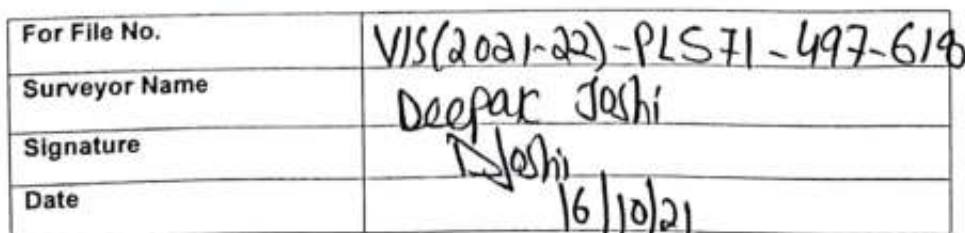 For File No. VIS(2021-22)-PL571-497-618
Surveyor Name Deepak Joshi
Signature DJoshi
Date 16/10/21